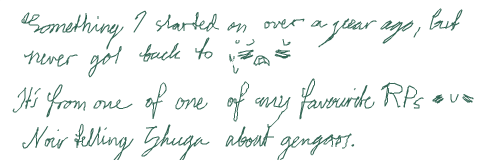 Something I started on over a year ago, but
never got back to
It's from one of one of my favourite RPs
Noir telling Ishuga about gengars.